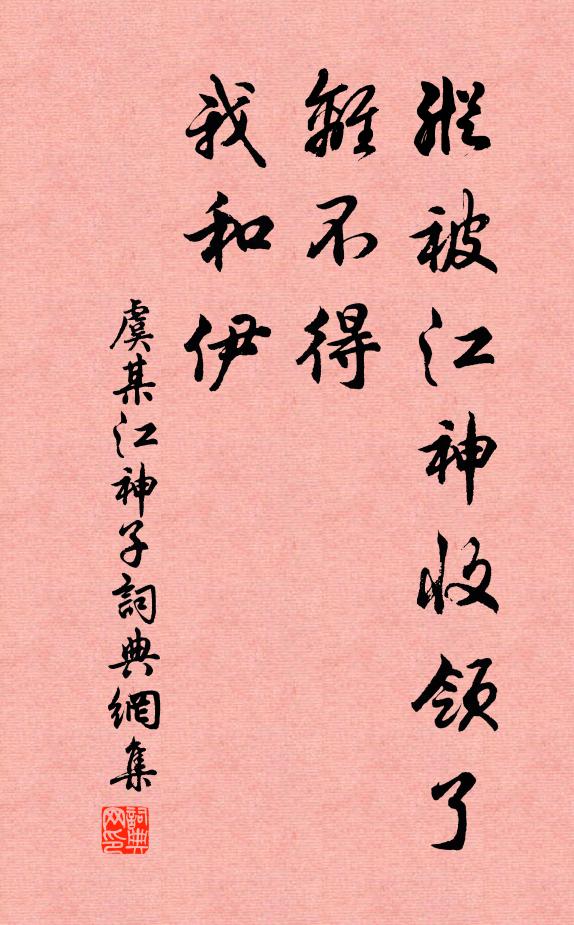 縱被江神收領了
離不得
我和伊
虞某江神子詞典網集
詞典网印